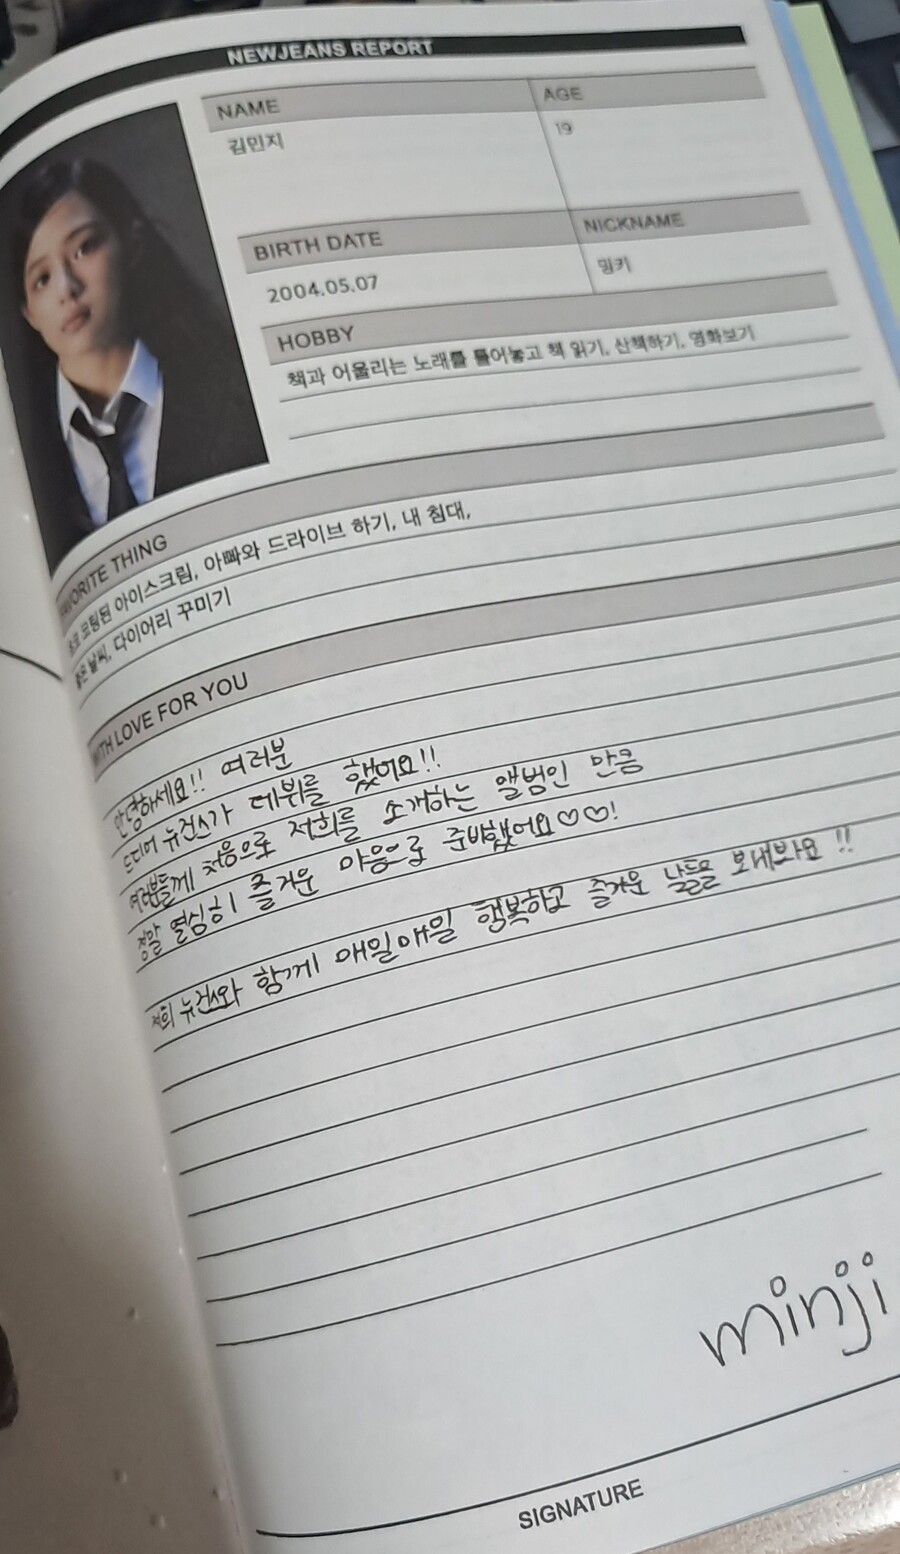 NEWJEANS REPORT
NAME AGE
김민지 19
BIRTH DATE NICKNAME
2004.05.07 밍키
HOBBY
책과 어울리는 노래를 틀어놓고 책 읽기, 산책하기, 영화보기
FAVORITE THING
코팅된 아이스크림, 아빠와 드라이브 하기, 내 침대,
좋은 날씨, 다이어리 꾸미기
WITH LOVE FOR YOU
안녕하세요!! 여러분
드디어 뉴진스가 데뷔를 했어요!!
여러분들께 처음으로 저희를 소개하는 앨범인 만큼
정말 열심히 즐거운 마음으로 준비했어요♡♡!
저희 뉴진스와 함께 매일매일 행복하고 즐거운 날들을 보내봐요!!
minji
SIGNATURE